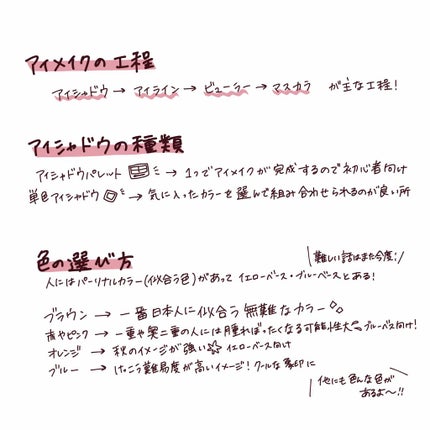 アイメイクの工程
アイシャドウ → アイライン → ビューラー → マスカラ が主な工程!
アイシャドウの種類
アイシャドウパレット → 1つでアイメイクが完成するので初心者向け
単色アイシャドウ → 気に入ったカラーを選んで組み合わせられるのが良い所
色の選び方
難しい話はまた今度!
人にはパーソナルカラー(似合う色)があって イエローベース・ブルーベースとある!
ブラウン → 一番日本人に似合う 無難なカラー
赤やピンク → 一重や奥二重の人には腫れぼったくなる可能性大 ブルーベース向け!
オレンジ → 秋のイメージが強い イエローベース向け
ブルー → けっこう難易度が高いイメージ! クールな印象に
他にも色んな色が
あるよ〜!!